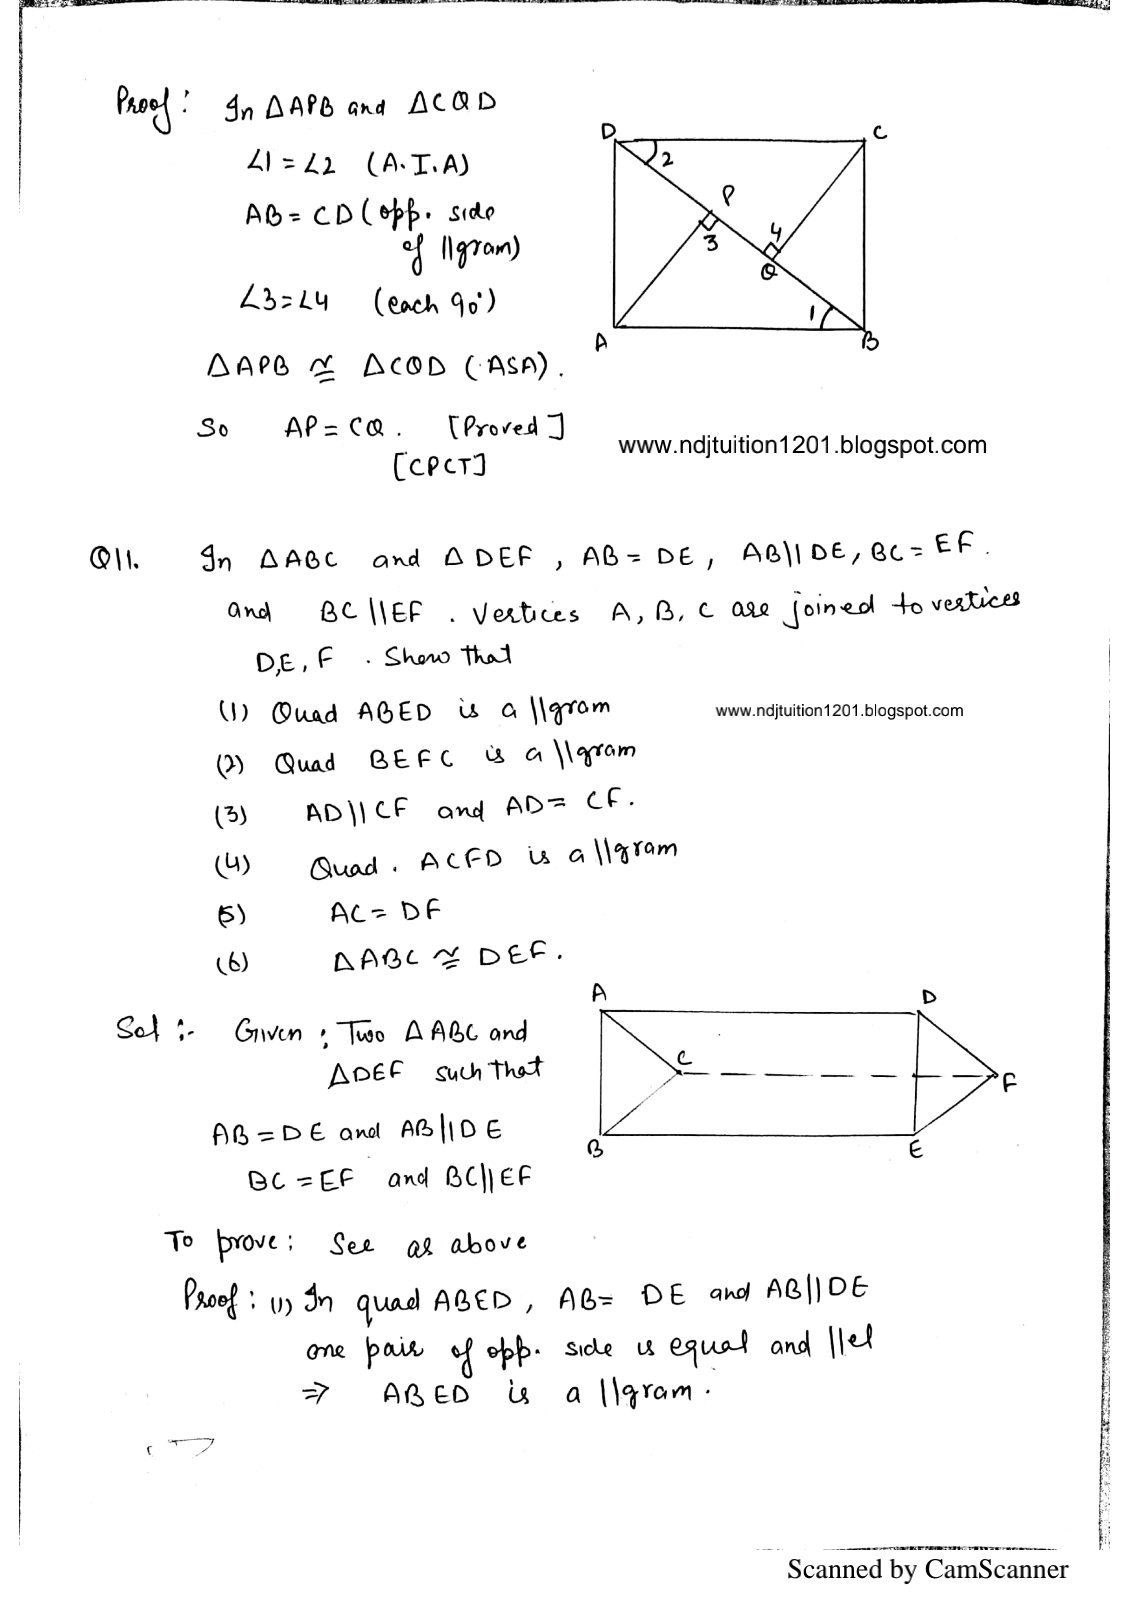 Proof: In ΔAPB and ΔCQD
∠1 = ∠2 (A.I.A)
AB = CD (opp. side
of ||gram)
∠3 = ∠4 (each 90°)
ΔAPB ≅ ΔCQD (ASA).
So AP = CQ. [Proved]
[CPCT]
D
C
2
P
3
4
Q
1
A
B
www.ndjtuition1201.blogspot.com
Q11. In ΔABC and ΔDEF, AB = DE, AB||DE, BC = EF.
and BC||EF. Vertices A, B, C are joined to vertices
D,E, F. Show that
(1) Quad ABED is a ||gram
www.ndjtuition1201.blogspot.com
(2) Quad BEFC is a ||gram
(3) AD||CF and AD = CF.
(4) Quad. ACFD is a ||gram
(5) AC = DF
(6) ΔABC ≅ DEF.
Sol :- Given: Two ΔABC and
ΔDEF such that
AB = DE and AB||DE
BC = EF and BC||EF
A
D
C
F
B
E
To prove: See as above
Proof: (1) In quad ABED, AB = DE and AB||DE
one pair of opp. side is equal and ||el
⇒ ABED is a ||gram.
Scanned by CamScanner